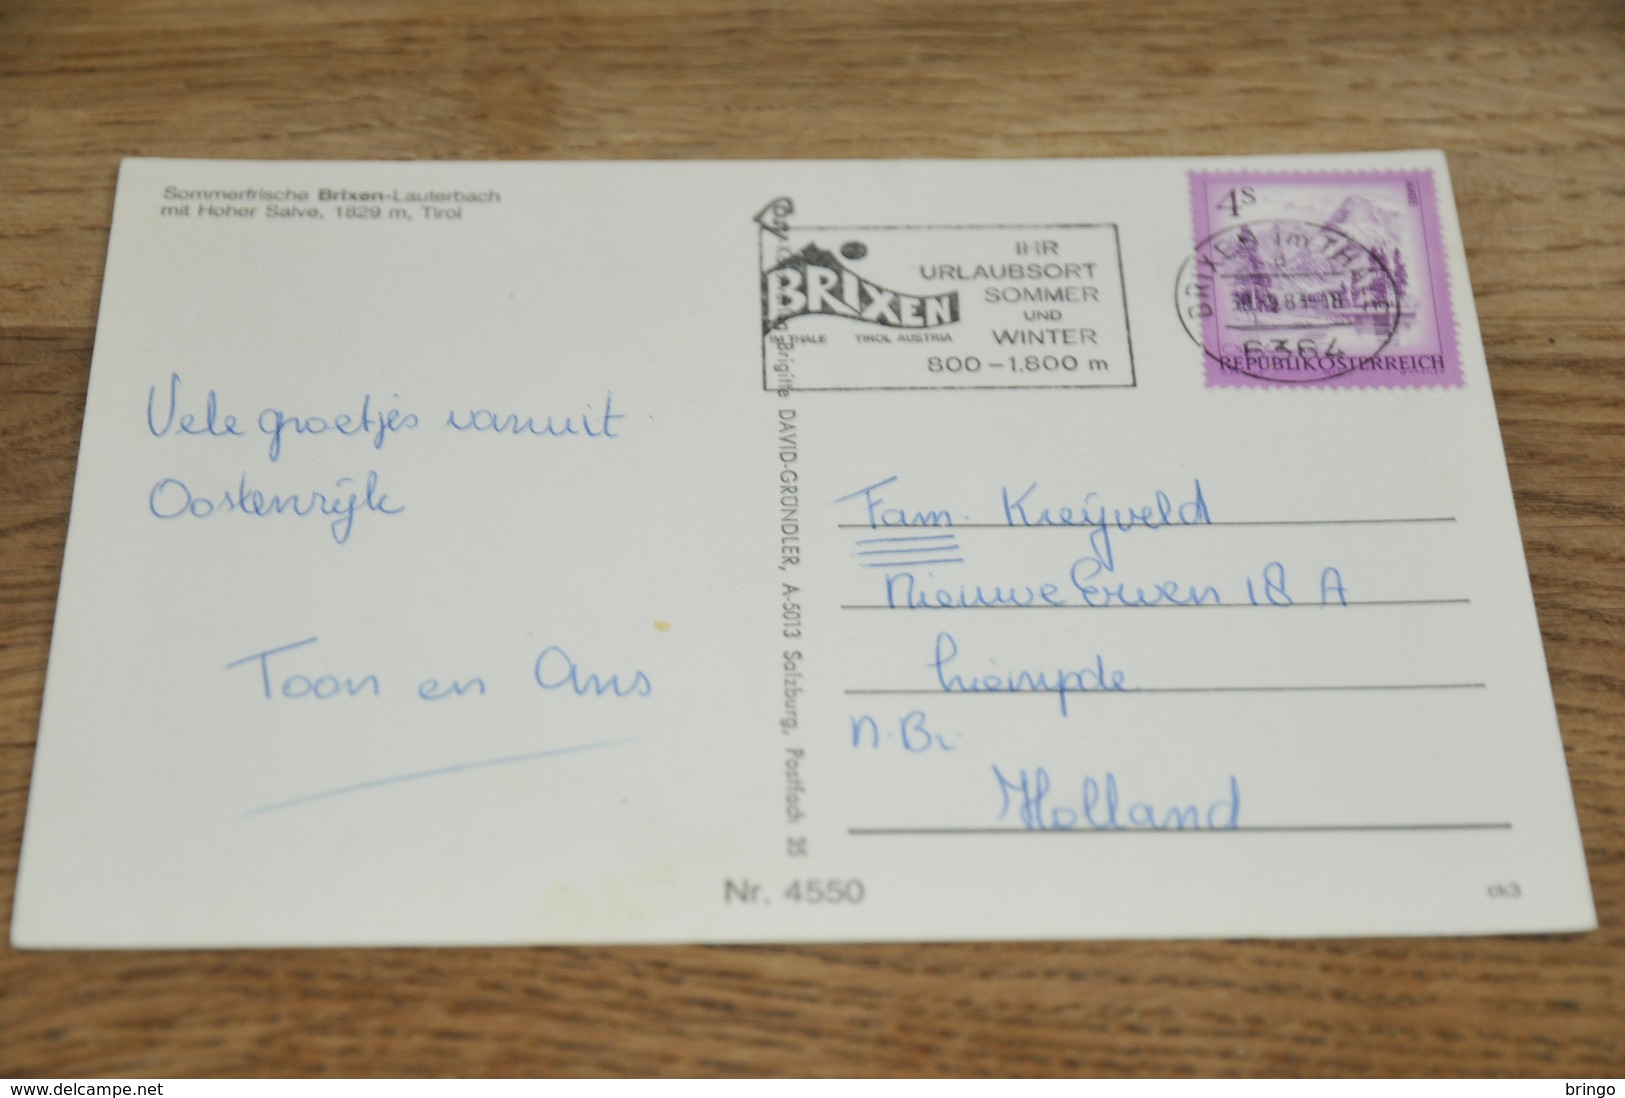 Sommerfrische Brixen-Lauterbach
mit Hoher Salve, 1829 m, Tirol
Vele groetjes vanuit
Oostenrijk
Toon en Ans
Brigitte DAVID-GRÜNDLER, A-5013 Salzburg, Postfach 35
Nr. 4550
BRIXEN
IM THALE TIROL AUSTRIA
IHR
URLAUBSORT
SOMMER
UND
WINTER
800 – 1.800 m
4S
REPUBLIK ÖSTERREICH
BRIXEN im THALE
6364
Fam. Kreijveld
Nieuwe Erven 18 A
Liempde
N. Br.
Holland
ck3
delcampe.net
bringo